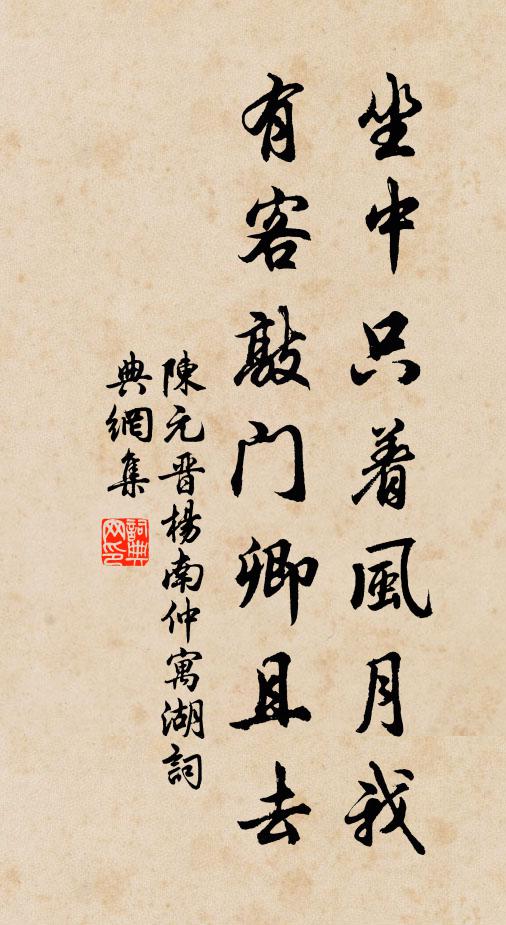 坐中只着風月我
有客敲门卿且去
陳元晋楊南仲寓湖詞
典網集
詞典网印